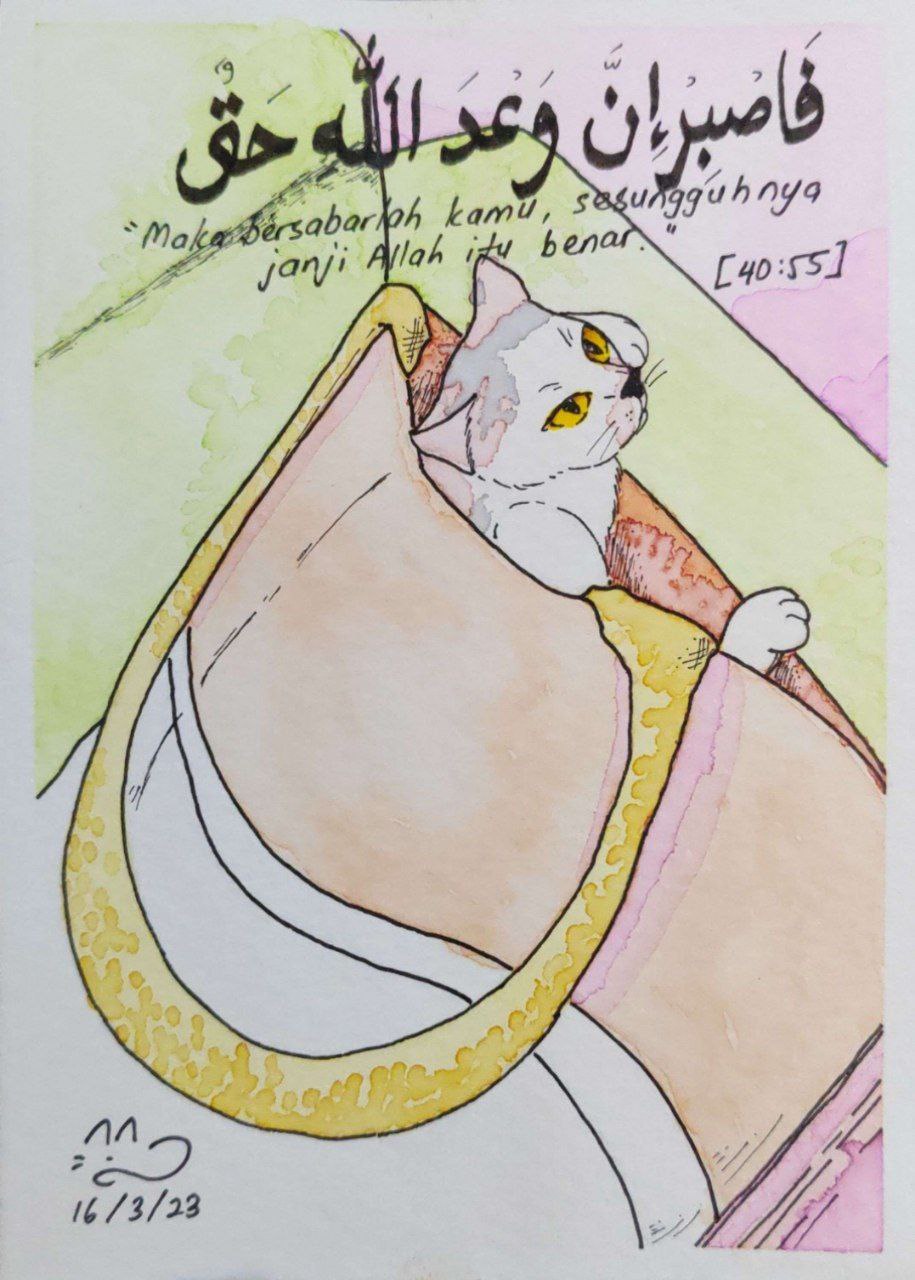 فَاصْبِرْ إِنَّ وَعْدَ اللّٰهِ حَقٌّ
"Maka bersabarlah kamu, sesungguhnya
janji Allah itu benar."
[40:55]
16/3/23